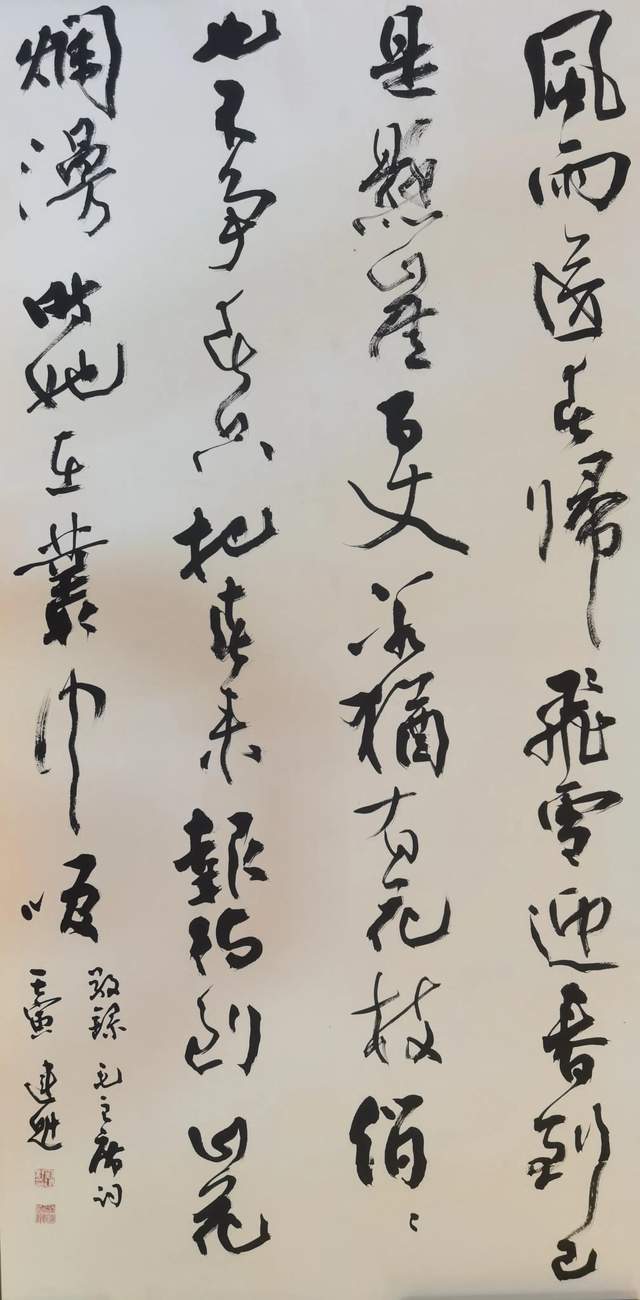 風雨送春歸飛雪迎春到已
是懸崖百丈冰猶有花枝俏〻
也不争春只把春来報待到山花
爛漫時她在叢中笑
敬録毛主席词
壬寅建魁